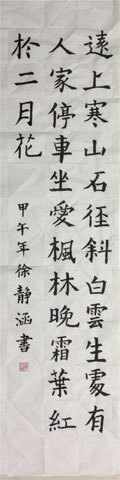 遠上寒山石径斜白雲生處有
人家停車坐愛楓林晚霜葉紅
於二月花
甲午年徐靜涵書